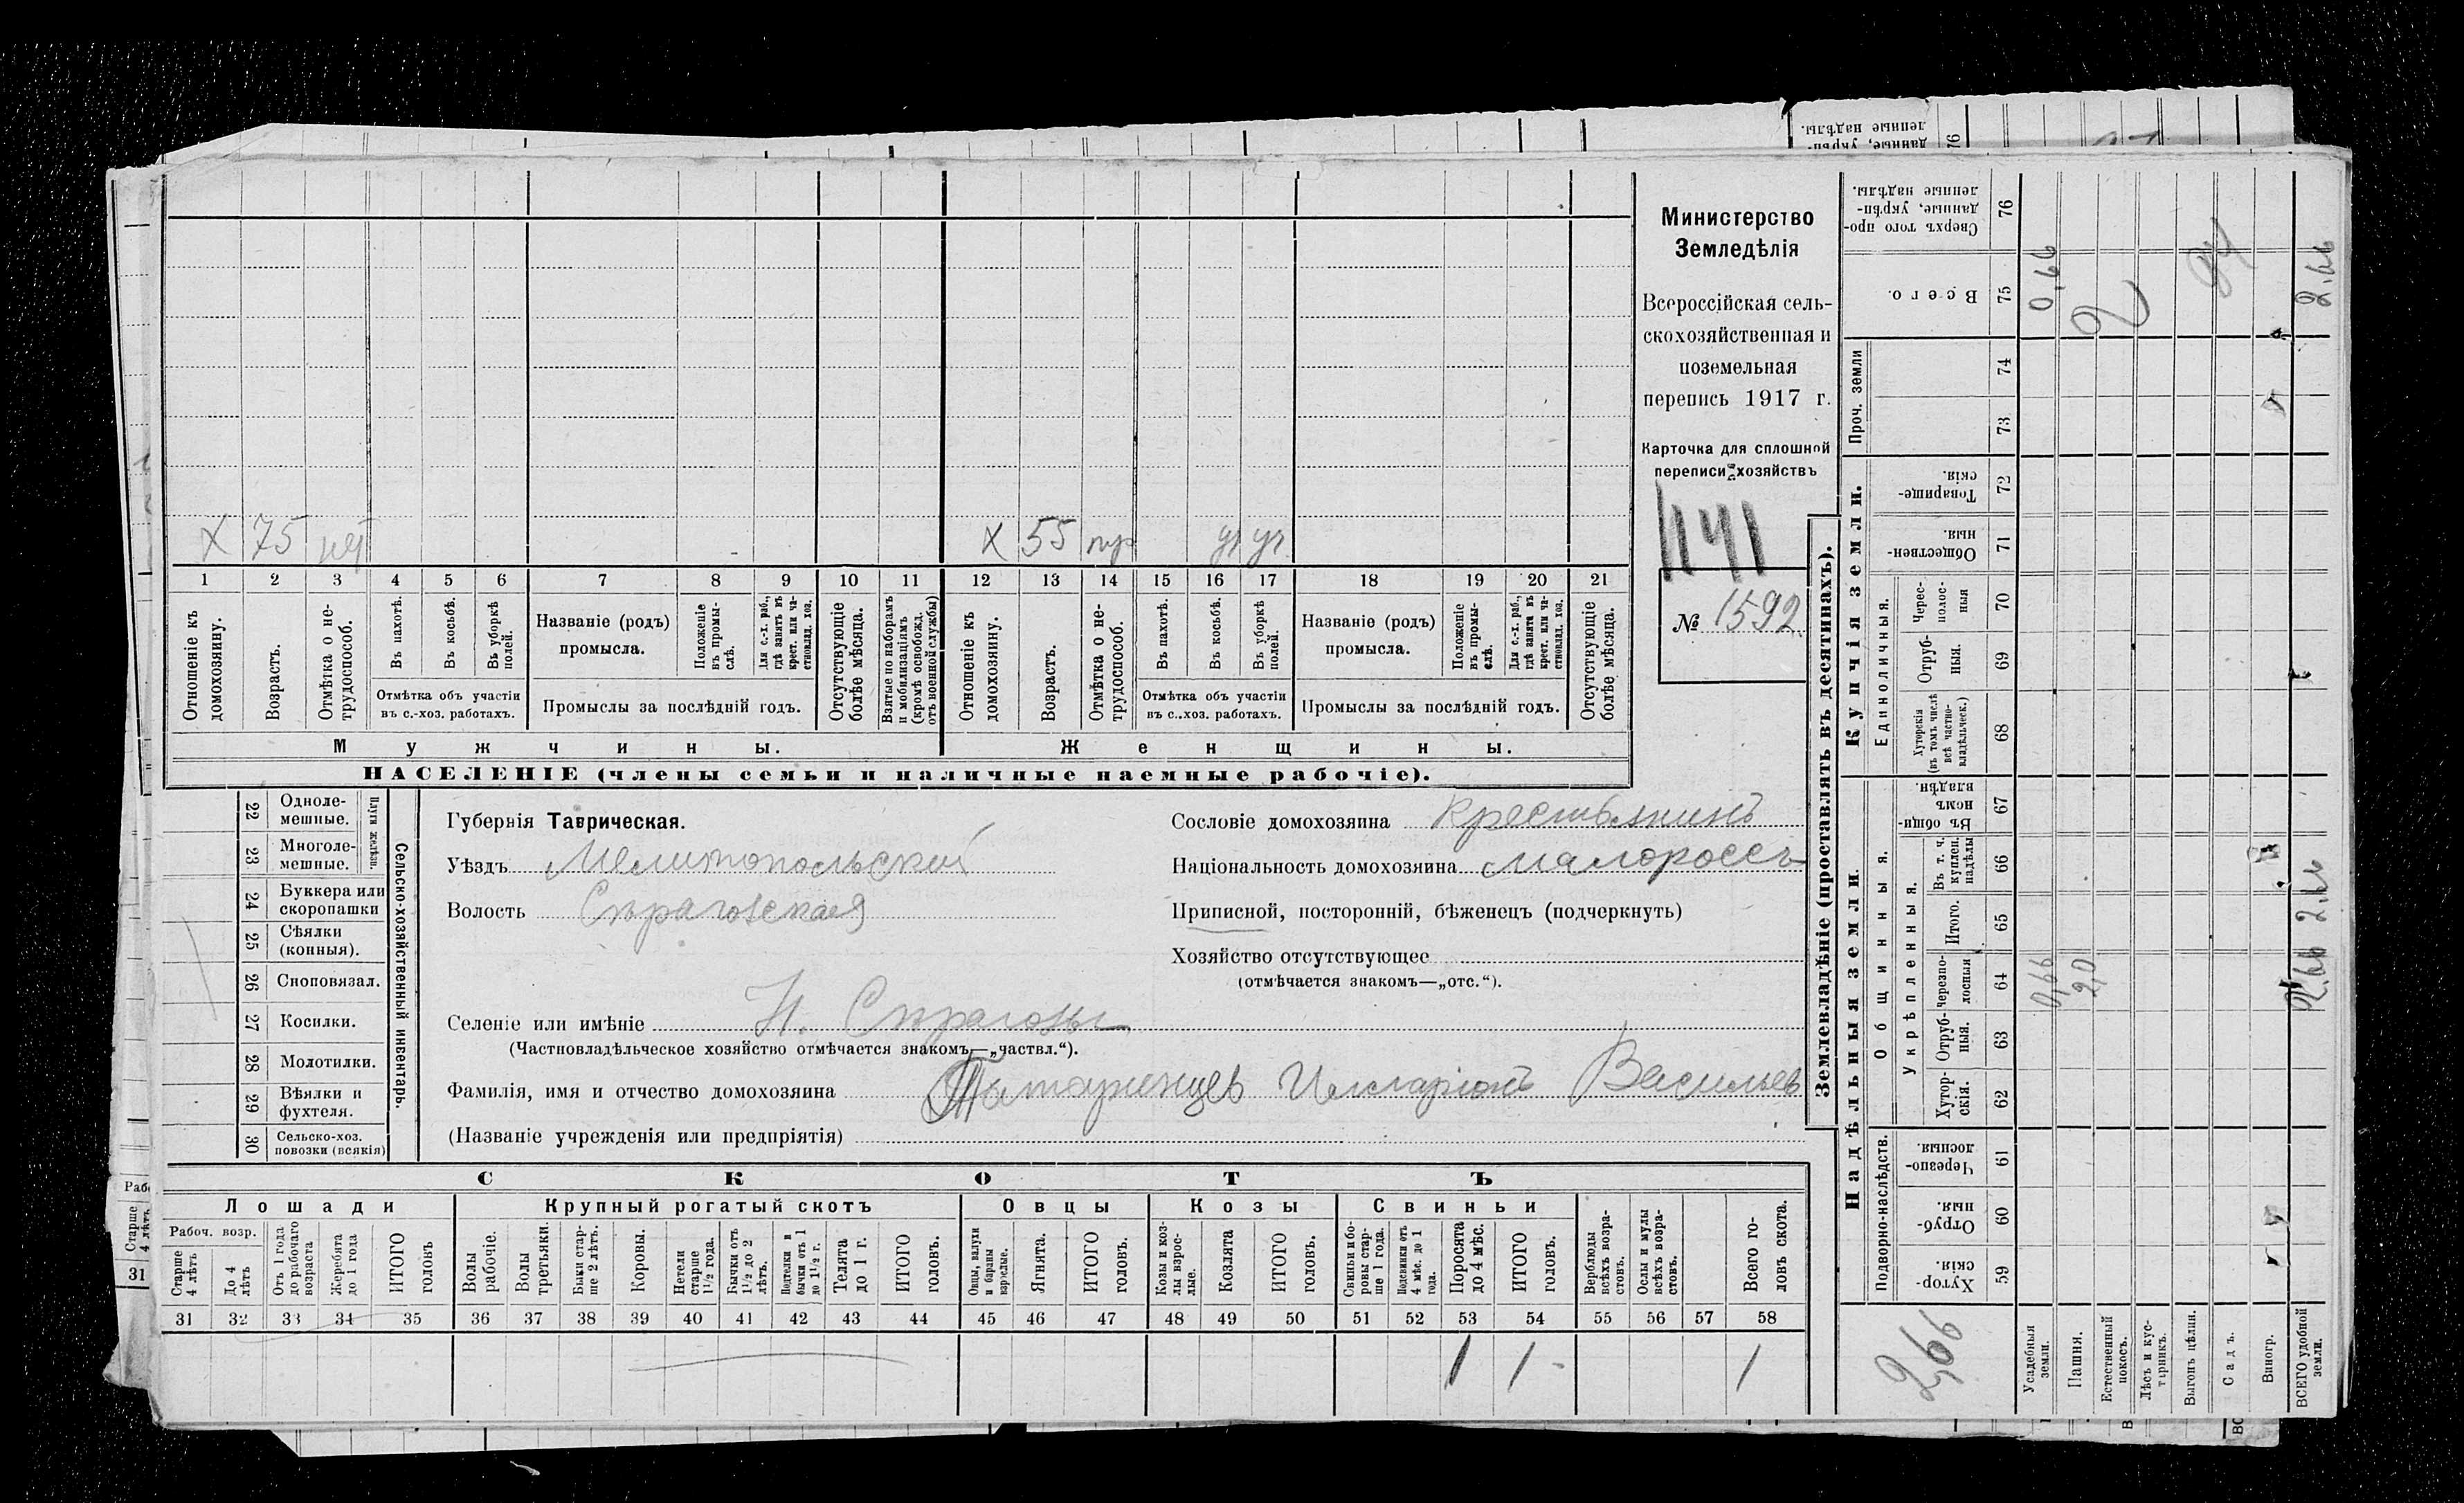 Министерство
Земледѣлія
Всероссійская сель-
скохозяйственная и
поземельная
перепись 1917 г.
Карточка для сплошной
переписи хозяйствъ
1141
№ 1592
X 75 X 55
1 2 3 4 5 6 7 8 9 10 11 12 13 14 15 16 17 18 19 20 21
Отношеніе къ домохозяину.
Возрастъ.
Отмѣтка о не-трудоспособ.
Въ пахотѣ.
Въ косьбѣ.
Въ уборкѣ полей.
Отмѣтка объ участіи
въ с.-хоз. работахъ.
Названіе (родъ)
промысла.
Положеніе въ промы-слѣ.
Для с.-х. раб., гдѣ занятъ въ крест. или ча-стновлад. хоз.
Промыслы за послѣдній годъ.
Отсутствующіе болѣе мѣсяца.
Взятые по наборамъ и мобилизаціямъ (кромѣ освобожд. отъ военной службы)
Отношеніе къ домохозяину.
Возрастъ.
Отмѣтка о не-трудоспособ.
Въ пахотѣ.
Въ косьбѣ.
Въ уборкѣ полей.
Отмѣтка объ участіи
въ с.-хоз. работахъ.
Названіе (родъ)
промысла.
Положеніе въ промы-слѣ.
Для с.-х. раб., гдѣ занята въ крест. или ча-стновлад. хоз.
Промыслы за послѣдній годъ.
Отсутствующіе болѣе мѣсяца.
Мужчины. Женщины.
НАСЕЛЕНІЕ (члены семьи и наличные наемные рабочіе).
Сельско-хозяйственный инвентарь.
Плуги желѣзн.
22 Одноле-мешные.
23 Многоле-мешные.
24 Буккера или скоропашки
25 Сѣялки (конныя).
26 Сноповязал.
27 Косилки.
28 Молотилки.
29 Вѣялки и фухтеля.
30 Сельско-хоз. повозки (всякія)
Губернія Таврическая.
Уѣздъ Мелитопольский
Волость Сѣрагозская
Селеніе или имѣніе Н. Сѣрагозы
(Частновладѣльческое хозяйство отмѣчается знакомъ—„частвл.“).
Фамилія, имя и отчество домохозяина Татаринцев Илларіонъ Васильев
(Названіе учрежденія или предпріятія)
Сословіе домохозяина крестьянинъ
Національность домохозяина малороссъ
Приписной, посторонній, бѣженецъ (подчеркнуть)
Хозяйство отсутствующее
(отмѣчается знакомъ—„отс.“).
СКОТЪ
Лошади Крупный рогатый скотъ Овцы Козы Свиньи
Рабоч. возр.
Старше 4 лѣтъ
До 4 лѣтъ
Отъ 1 года до рабочаго возраста
Жеребята до 1 года
ИТОГО головъ
Волы рабочіе.
Волы третьяки.
Быки стар-ше 2 лѣтъ.
Коровы.
Нетели старше 1½ года.
Бычки отъ 1½ до 2 лѣтъ.
Подтелки и бычки отъ 1 до 1½ г.
Телята до 1 г.
ИТОГО головъ.
Овцы, валухи и бараны взрослые.
Ягнята.
ИТОГО головъ.
Козы и коз-лы взрос-лые.
Козлята
ИТОГО головъ.
Свиньи и бо-ровы стар-ше 1 года.
Подсвинки отъ 4 мѣс. до 1 года.
Поросята до 4 мѣс.
ИТОГО головъ.
Верблюды всѣхъ возра-стовъ.
Ослы и мулы всѣхъ возра-стовъ.
Всего го-ловъ скота.
31 32 33 34 35 36 37 38 39 40 41 42 43 44 45 46 47 48 49 50 51 52 53 54 55 56 57 58
1 1 1
Землевладѣніе (проставлять въ десятинахъ).
Надѣльныя земли.
Купчія земли.
Проч. земли
Подворно-наслѣдств.
Общинныя.
Укрѣпленныя.
Единоличныя.
Хутор-скія. 59
Отруб-ныя. 60
Черезпо-лосныя. 61
Хутор-скія. 62
Отруб-ныя. 63
Черезпо-лосныя 64
Итого. 65
Въ т. ч. куплен. надѣлы 66
Въ общин-номъ владѣн. 67
Хуторскія (въ томъ числѣ всѣ частно-владѣльческ.) 68
Отруб-ныя. 69
Черес-полос-ныя 70
Обществен-ныя. 71
Товарище-скія. 72
73
74
Всего. 75
Сверхъ того про-данные, укрѣп-ленные надѣлы. 76
2,66
Усадебныя земли. 0,66 0,66
Пашня. 2,0 2
Естественный покосъ.
Лѣсъ и кус-тарникъ.
Выгонъ цѣлин.
Садъ.
Виногр.
ВСЕГО удобной земли. 2,66 2,66 2,66